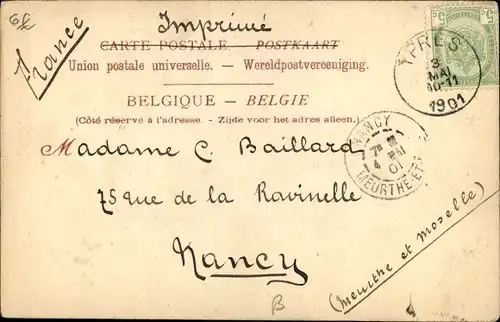 6£
Imprimé
France
CARTE POSTALE. — POSTKAART
Union postale universelle. — Wereldpostvereeniging.
BELGIQUE — BELGIE
(Côté réservé à l'adresse. - Zijde voor het adres alleen.)
5 5
YPRES
3
MAI
10-11
1901
NANCY
7E M
4 MAI
01
MEURTHE-ET-
Madame C. Baillard
75 Rue de la Ravinelle
Nancy
(Meurthe et moselle)
B